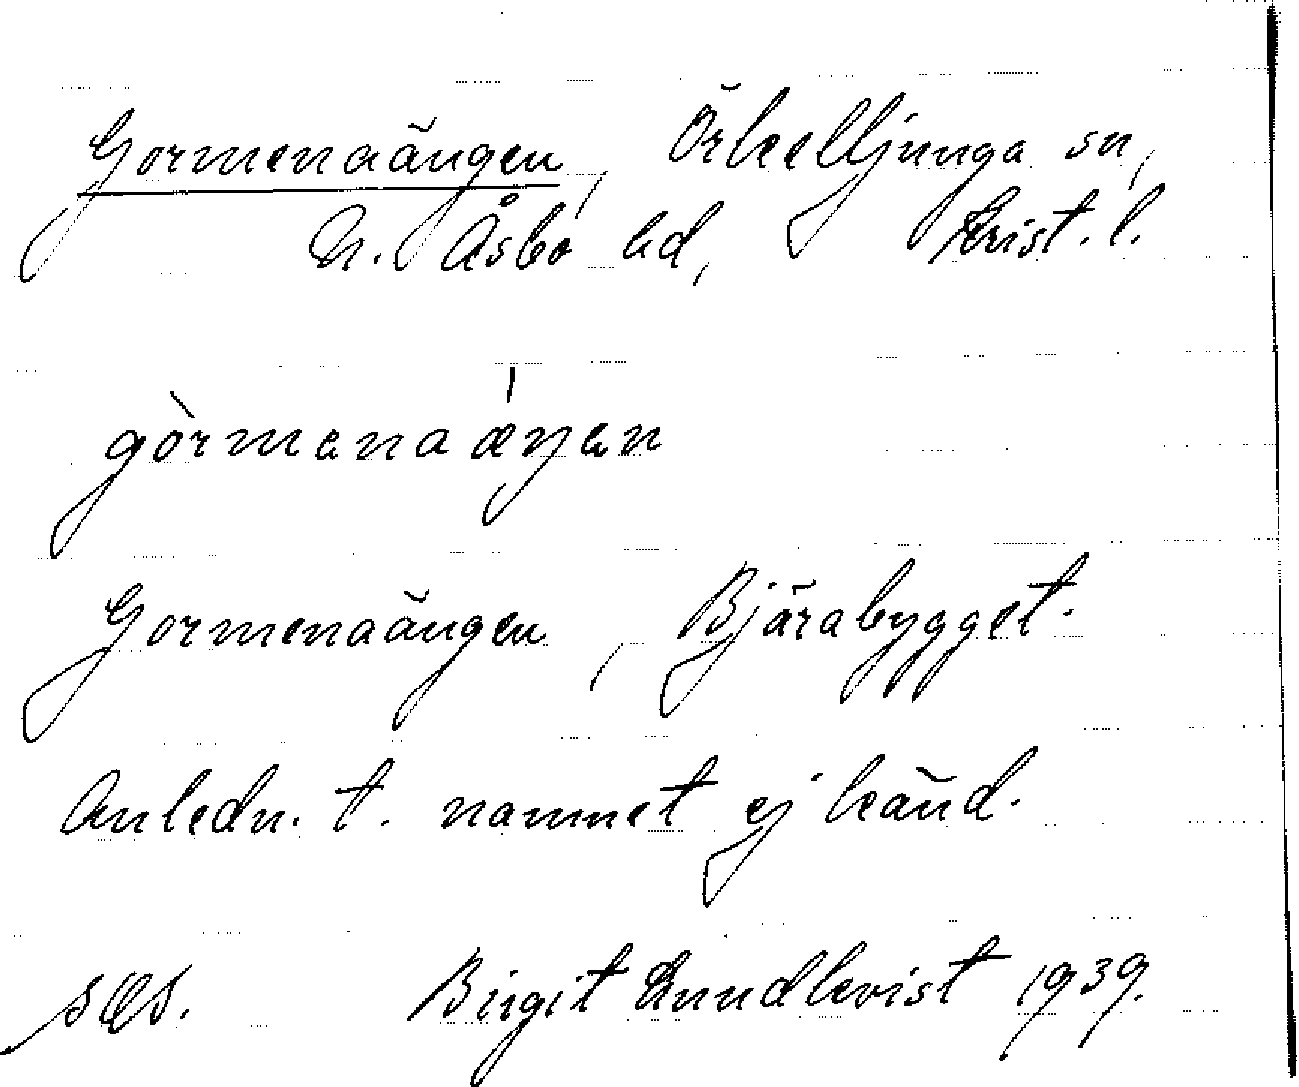 Gormenaängen, Örkelljunga sn,
N. Åsbo hd, Krist. l.
gòrmenaæŋen
Gormenaängen, Bjärabygget.
Anledn. t. namnet ej känd.
Birgit Lundkvist 1939.